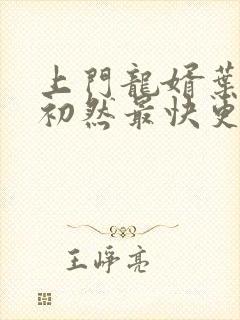 上門龍婿葉
初然最快更
王崢亮